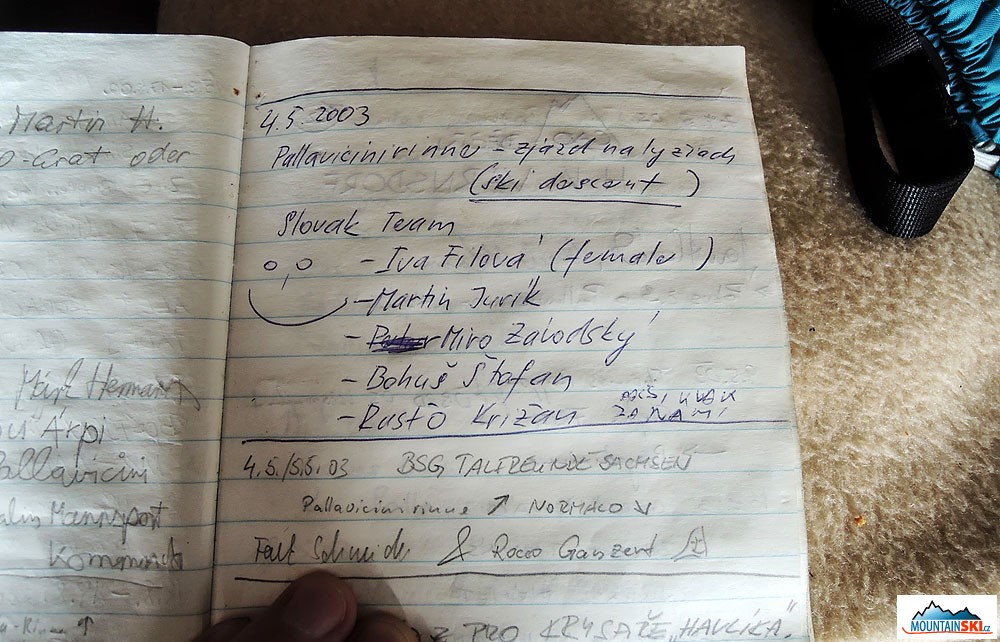 Martin H.
Grat oder
Hermann
Árpi
Pallavicini
4.5.2003
Pallavicinirinne - zjazd na lyžiach
(ski descent)
Slovak Team
- Iva Filová (female)
- Martin Jurík
- Miro Závodský
- Bohuš Štefan
- Rusťo Križan
ZA NAMI
4.5./5.5.03 BSG TALFREUNDE SACHSEN
Pallavicinirinne ↗ NORMALO ↘
& Rocco Ganzert
Z PRO KRYSAŘE „HAVLÍKA“
MOUNTAINSKI.cz